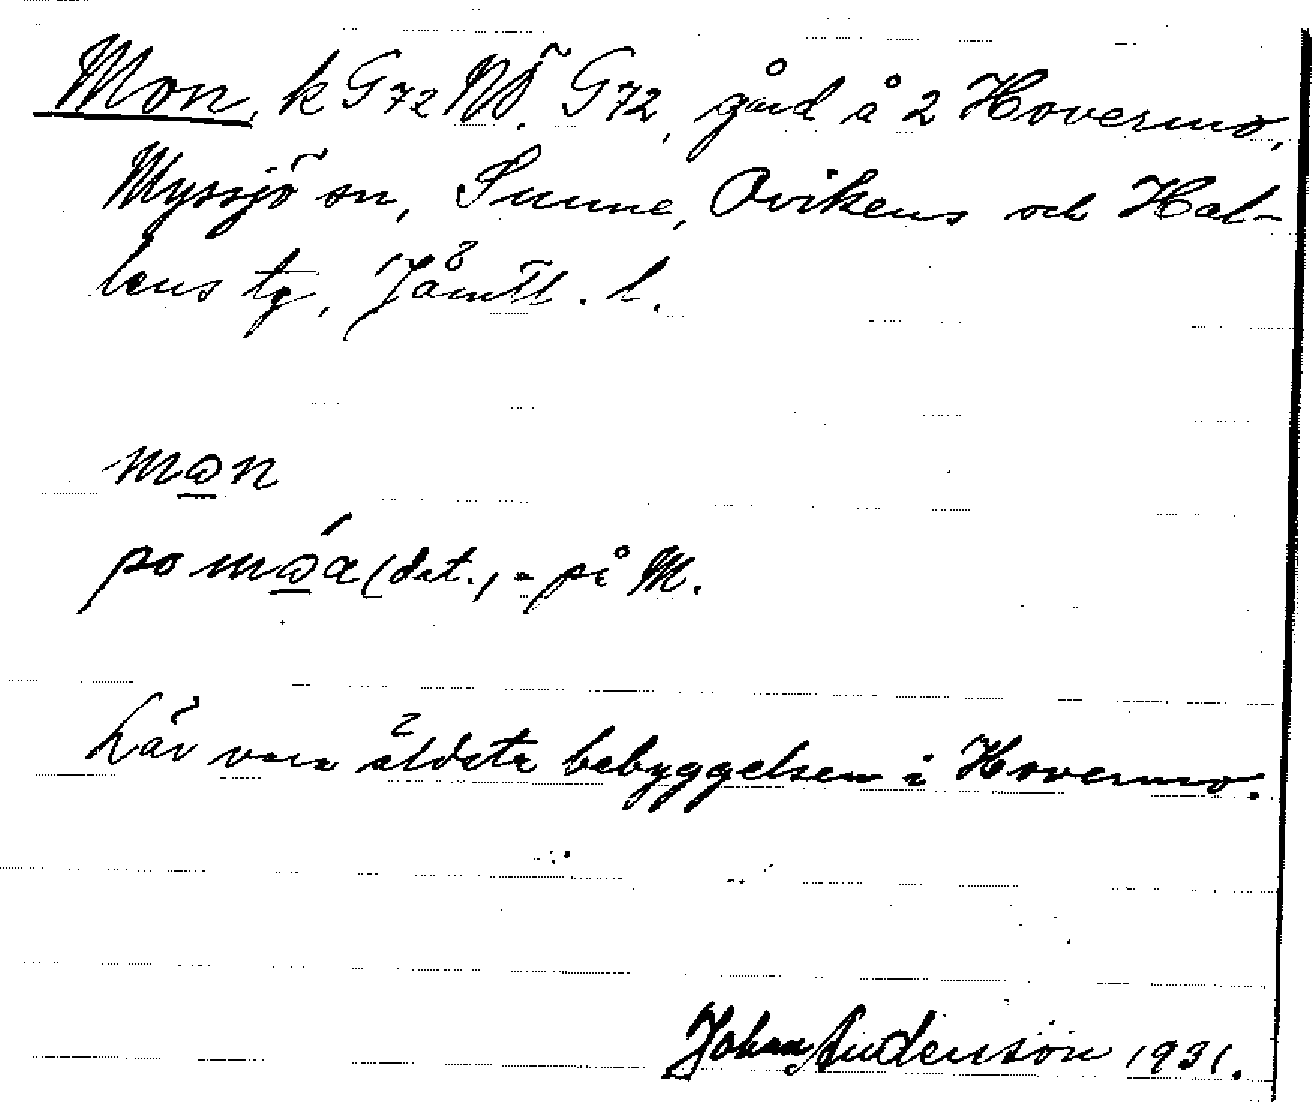 Mon, k G72 NÖ. G72, gård å 2 Hovermo,
Myssjö sn, Sunne, Ovikens och Hal-
lens tg, Jämtl. l.
mωn
po mωa (dat.) = på M.
Lär vara äldsta bebyggelsen i Hovermo.
Johan Andersson 1931.